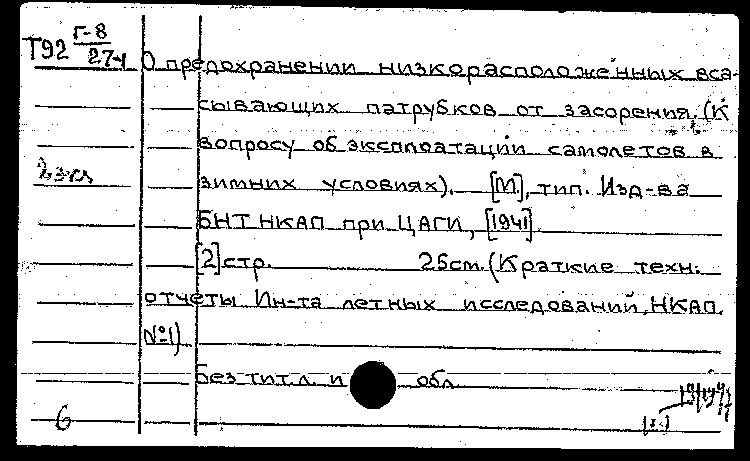 Т92 Г-8/27ч
О предохранении низкорасположенных вса-
сывающих патрубков от засорения. (К
вопросу об эксплоатации самолетов в
2 экз
зимних условиях). [М], тип. Изд-ва
БНТ НКАП при ЦАГИ, [1941].
[2] стр. 25см. (Краткие техн.
отчеты Ин-та летных исследований, НКАП.
№1)
Без тит.л. и обл
6